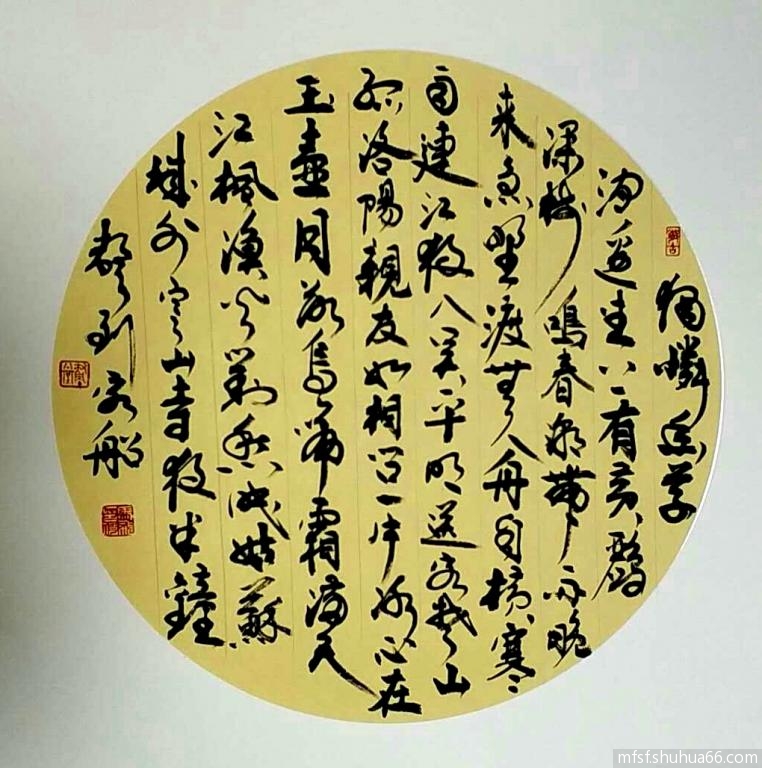 獨憐幽草
涧邊生上有黄鸝
深樹鳴春潮帶雨晚
来急野渡無人舟自横寒
雨連江夜入吴平明送客楚山
孤洛陽親友如相问一片冰心在
玉壺月落烏啼霜滿天
江楓漁火對愁眠姑蘇
城外寒山寺夜半鐘
聲到客船
mfsf.shuhua66.com